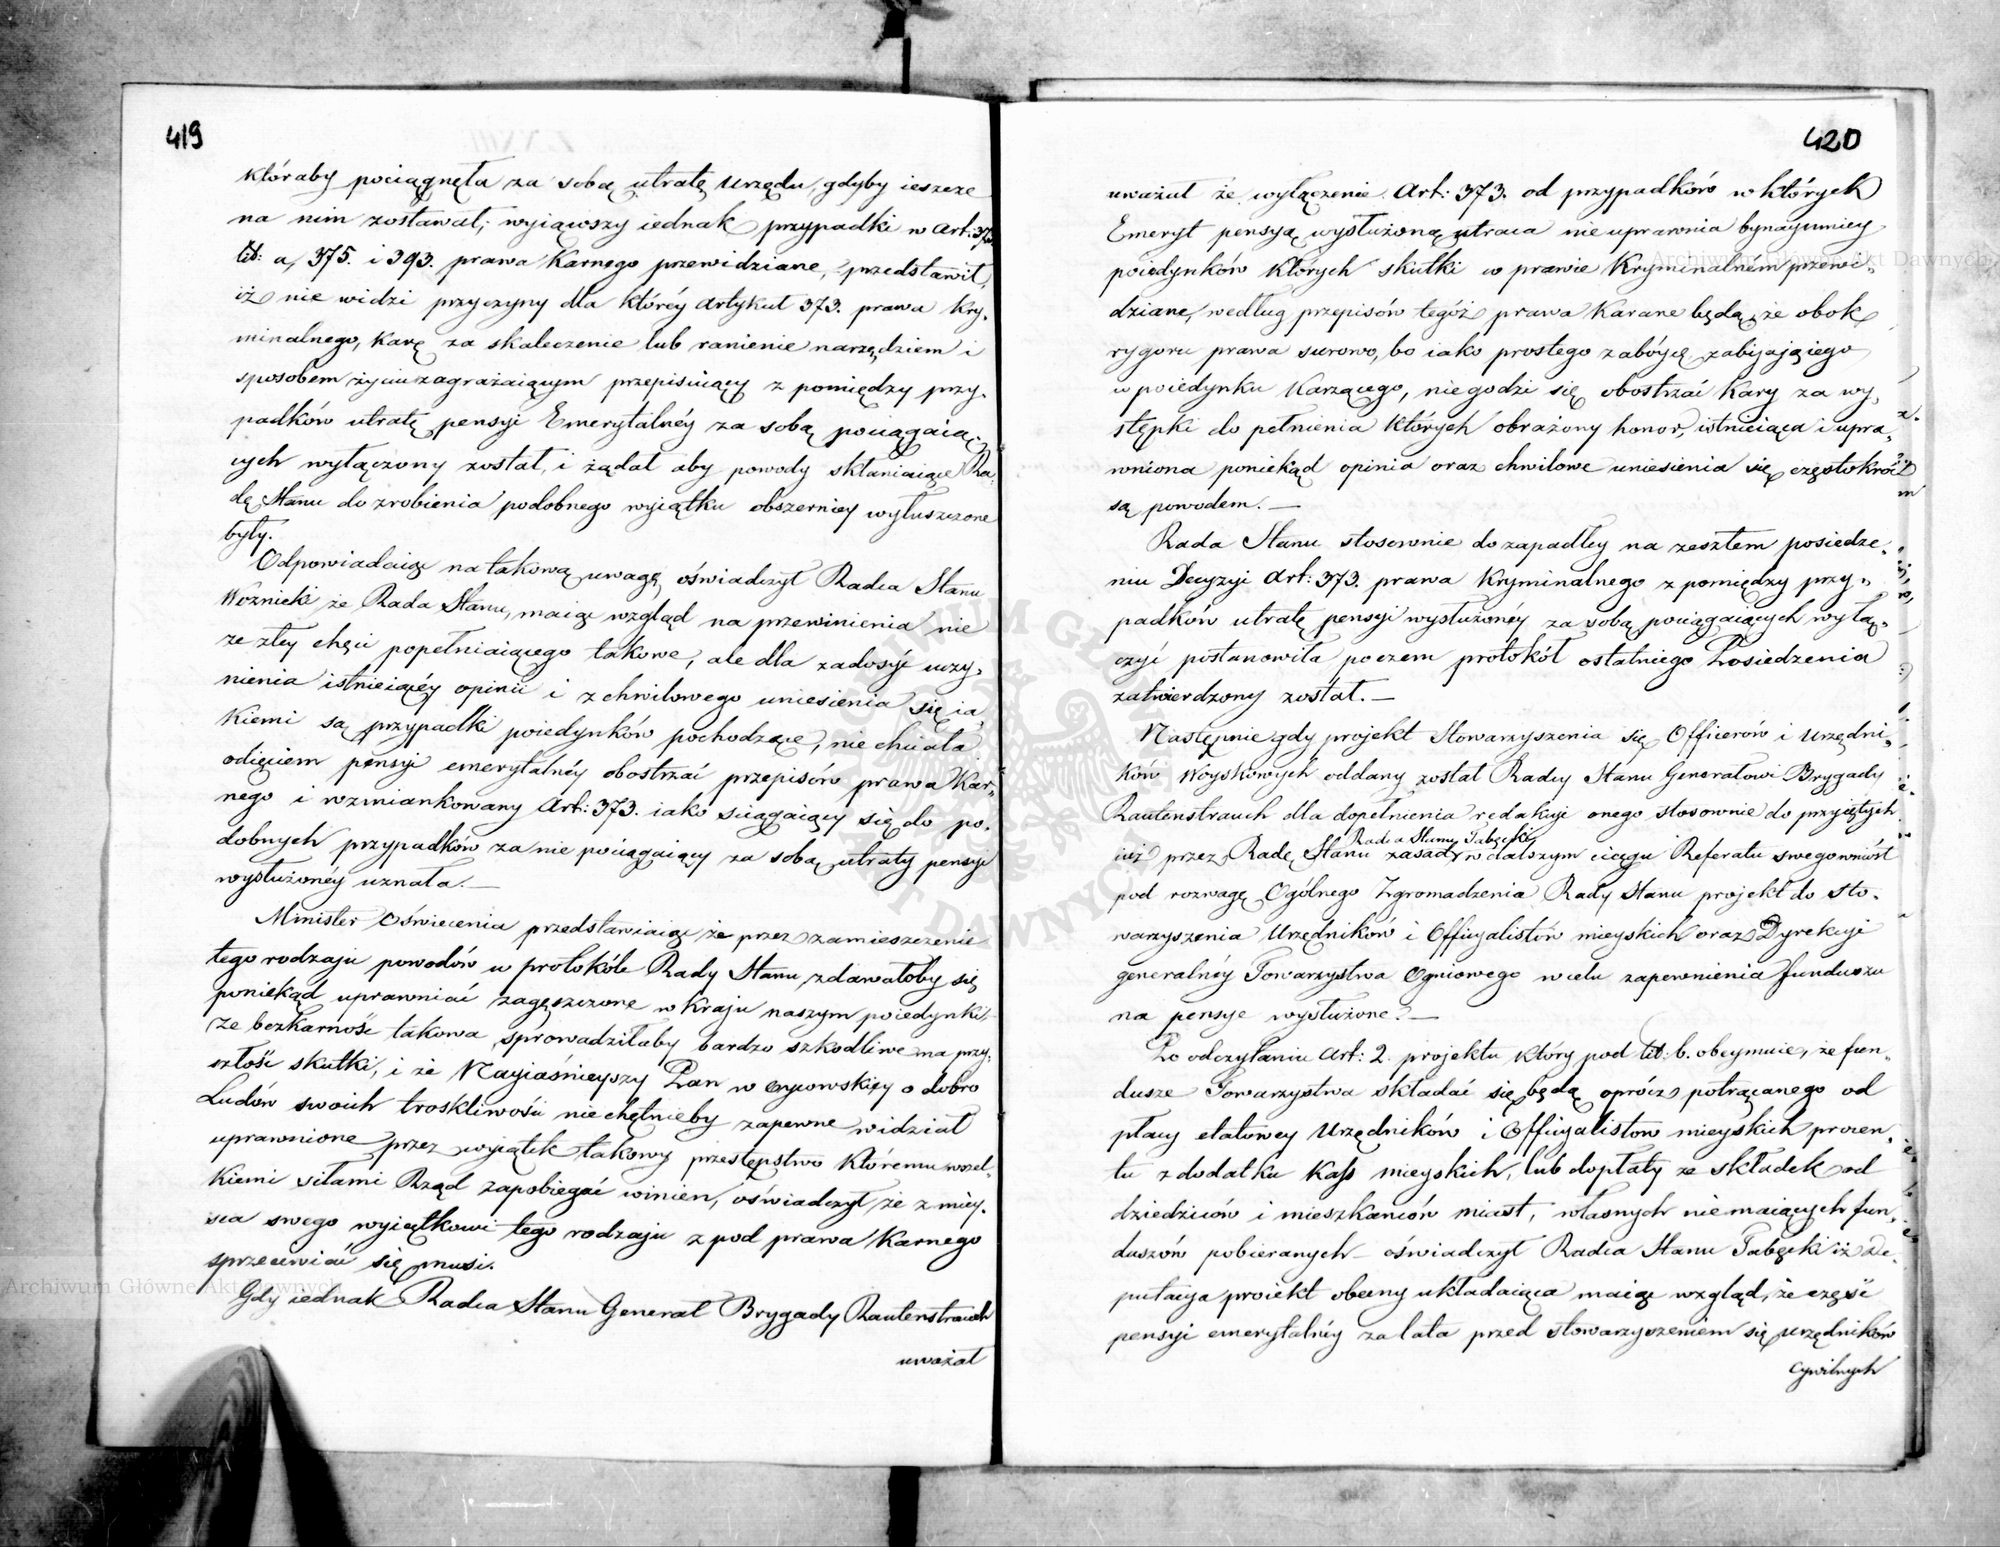 419
któraby pociągnęła za sobą utratę Urzędu, gdyby ieszcze
na nim zostawał; wyiąwszy iednak przypadki w Art:
lit: a, 375. i 393. prawa Karnego przewidziane, przedstawił,
iż nie widzi przyczyny dla któréy Artykuł 373. prawa Kry-
minalnego, karę za skaleczenie lub ranienie narzędziem i
sposobem życiu zagrażaiącym przepisuiący z pomiędzy przy-
padków utratę pensyi Emerytalnéy za sobą pociągaią-
cych wyłączony został, i żądał aby powody skłaniaiące Ra-
dę Stanu do zrobienia podobnego wyiątku obszerniey wyłuszczone
były.
Odpowiadaiąc na takową uwagę, oświadczył Radca Stanu
Woznicki że Rada Stanu, maiąc wzgląd na przewinienia nie
ze złey chęci popełniaiącego takowe, ale dla zadosyć uczy-
nienia istnieiącéy opinii i z chwilowego uniesienia się ia-
kiemi są przypadki poiedynków pochodzące, nie chciała
odięciem pensyi emerytalnéy obostrzać przepisów prawa Kar-
nego i wzmiankowany Art: 373. iako sciągaiący się do po-
dobnych przypadków za nie pociągaiący za sobą utraty pensyi
wysłużonéy uznała.—
Minister Oświecenia przedstawiaiąc że przez zamieszczenie
tego rodzaju powodów w protokóle Rady Stanu, zdawałoby się
poniekąd uprawniać zagęszczone w kraju naszym poiedynki
że bezkarność takowa sprowadziłaby bardzo szkodliwe na przy-
szłość skutki, i że Nayiaśnieyszy Pan w oycowskiey o dobro
Ludów swoich troskliwości niechętnieby zapewne widział
uprawnione przez wyiątek takowy przestępstwo któremu wszel-
kiemi siłami Rząd zapobiegać winien, oświadczył że z miey-
sca swego wyiątkowi tego rodzaju z pod prawa Karnego
sprzeciwiać się musi.
Gdy iednak Radca Stanu Generał Brygady Rautenstrauch
uważał
420
uważał że wyłączenie Art: 373. od przypadków w których
Emeryt pensyą wysłużoną utraca nie uprawnia bynaymniey
poiedynków których skutki w prawie Kryminalnem przewi-
dziane, według przepisów tegóż prawa karane będą, że obok
rygoru prawa surowo, bo iako prostego zabóycę zabijaiącego
w poiedynku karzącego, nie godzi się obostrzać kary za wy-
stępki do pełnienia których obrażony honor, istnieiąca i upra-
wniona poniekąd opinia oraz chwilowe uniesienia się częstokroć
są powodem.—
Rada Stanu stosownie do zapadłey na zeszłem posiedze-
niu Decyzyi Art: 373. prawa Kryminalnego z pomiędzy przy-
padków utratę pensyi wysłużonéy za sobą pociągaiących wyłą-
czyć postanowiła poczem protokół ostatniego Posiedzenia
zatwierdzony został.—
Następnie gdy projekt Stowarzyszenia się Officerów i Urzędni-
ków Woyskowych oddany został Radcy Stanu Generałowi Brygady
Rautenstrauch dla dopełnienia redakcyi onego stosownie do przyiętych
Radca Stanu Tabęcki
iuż przez Radę Stanu zasad, w dalszym ciągu Referatu swego wniósł
pod rozwagę Ogólnego Zgromadzenia Rady Stanu projekt do Sto-
warzyszenia Urzędników i Officyalistów mieyskich oraz Dyrekcyi
generalnéy Towarzystwa Ogniowego w celu zapewnienia funduszu
na pensye wysłużone.—
Po odczytaniu Art: 2. projektu który pod lit: b. obeymuie, że fun-
dusze Towarzystwa składać się będą oprócz potrącanego od
płacy etatowey Urzędników i Officyalistów mieyskich procen-
tu z dodatku Kass mieyskich, lub dopłaty ze składek od
dziedziców i mieszkańców miast, własnych nie maiących fun-
duszów pobieranych— oświadczył Radca Stanu Tabęcki iż De-
putacya proiekt obecny układaiąca maiąc wzgląd, że część
pensyi emerytalnéy za lata przed stowarzyszeniem się urzędników
cywilnych
Archiwum Główne Akt Dawnych
Archiwum Główne Akt Dawnych